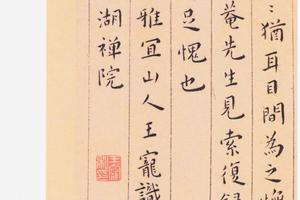 猶耳目間為之
菴先生見索復錄
足愧也
雅宜山人王寵識
湖禪院